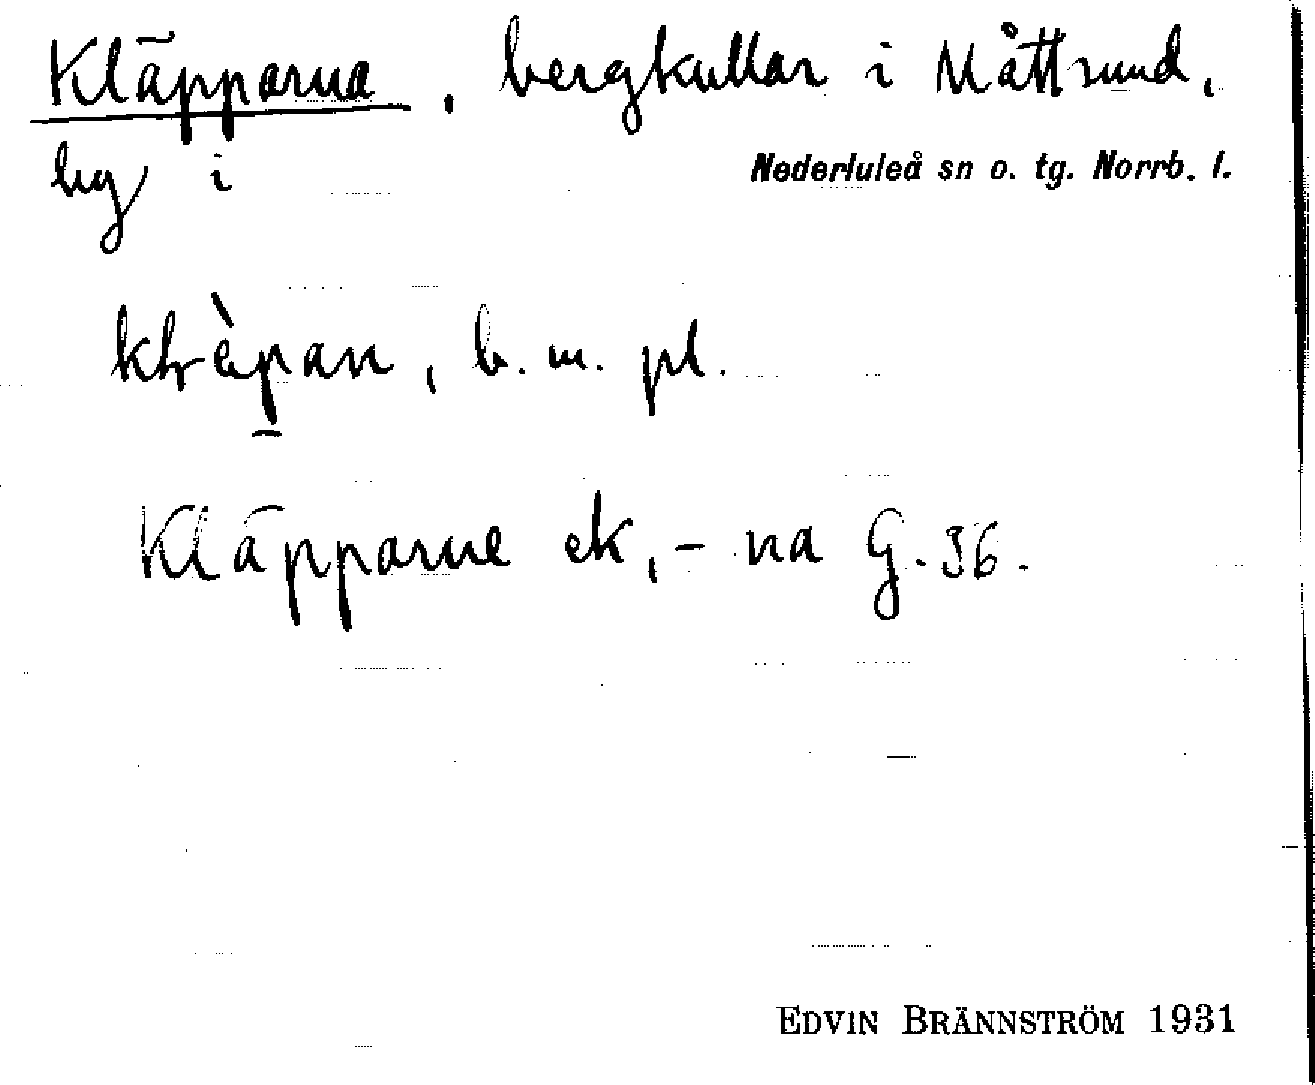 Kläpparna, bergkullar i Måttsund,
by i Nederluleå sn o. tg. Norrb. l.
, b. m. pl.
Kläpparne ek, -na G. 36.
EDVIN BRÄNNSTRÖM 1931